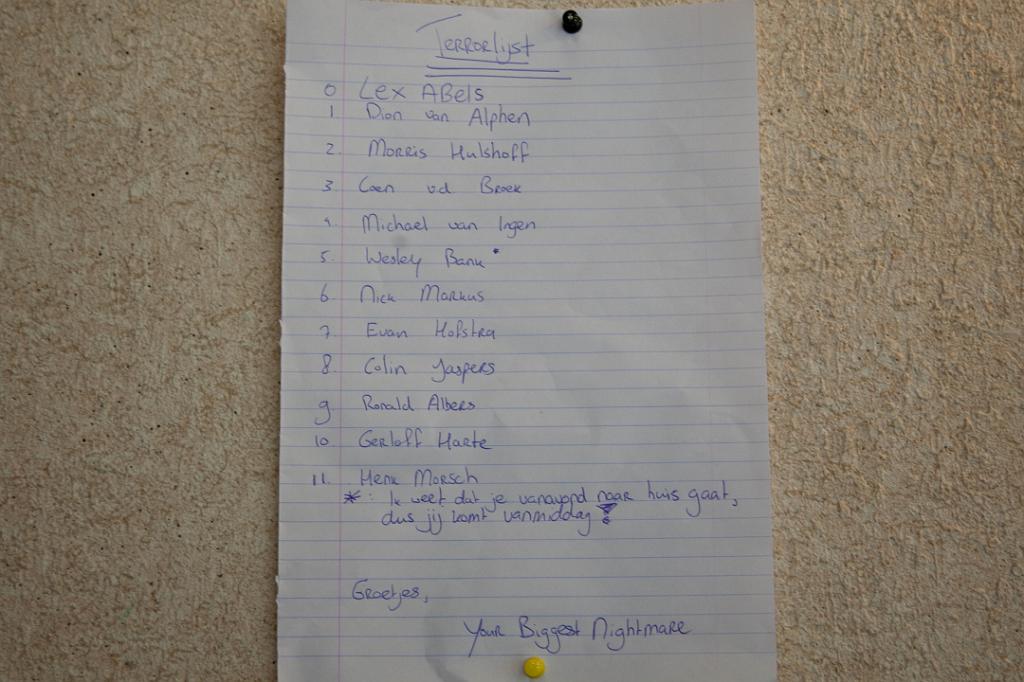 Terrorlijst
0 Lex Abels
1 Dion van Alphen
2. Morris Hulshoff
3. Coen vd Broek
4. Michael van Ingen
5. Wesley Bank *
6. Nick Markus
7. Evan Hofstra
8. Colin Jaspers
9. Ronald Albers
10. Gerloff Harte
11. Henk Morsch
* : Ik weet dat je vanavond naar huis gaat,
dus jij komt vanmiddag!
Groetjes,
Your Biggest Nightmare